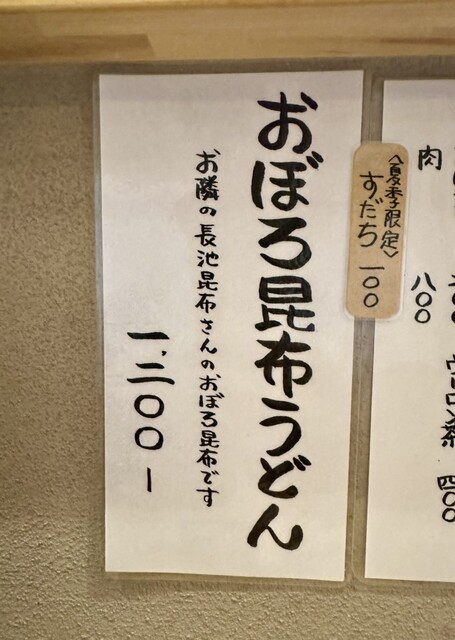 ウーロン茶 四〇〇
肉 八〇〇
〈夏季限定〉
すだち 一〇〇
おぼろ昆布うどん
お隣の長池昆布さんのおぼろ昆布です
一、二〇〇ー